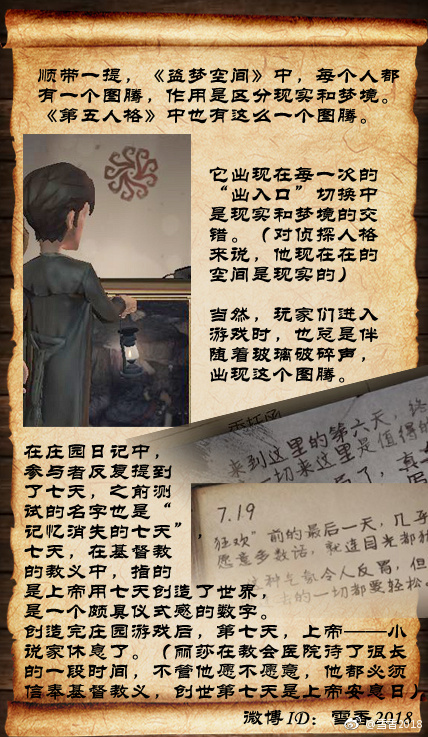 顺带一提，《盗梦空间》中，每个人都
有一个图腾，作用是区分现实和梦境。
《第五人格》中也有这么一个图腾。
它出现在每一次的
“出入口”切换中
是现实和梦境的交
错。（对侦探人格
来说，他现在在的
空间是现实的）
当然，玩家们进入
游戏时，也总是伴
随着玻璃破碎声，
出现这个图腾。
来到这里的第六天，终
一切来这里是值得的
7.19
狂欢”前的最后一天，几乎
愿意多数话，就连目光都
这种气氛令人反胃，但
的一切都要轻松。
在庄园日记中，
参与者反复提到
了七天，之前测
试的名字也是“
记忆消失的七天”，
七天，在基督教
的教义中，指的
是上帝用七天创造了世界，
是一个颇具仪式感的数字。
创造完庄园游戏后，第七天，上帝——小
说家休息了。（丽莎在教会医院待了很长
的一段时间，不管他愿不愿意，他都必须
信奉基督教义，创世第七天是上帝安息日）
微博ID：雪香2018
@雪香2018